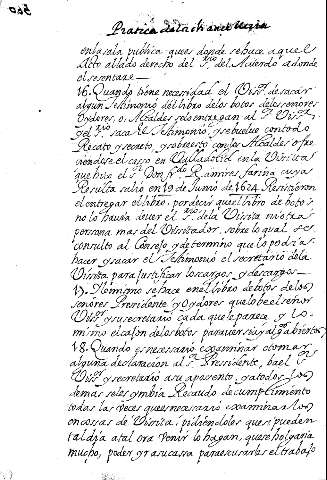 360
Pratica de la chancilleria
en la sala publica que es donde se hace aquel
Acto al lado derecho del S.r del Acuerdo a donde
el se sentare
16. Quando tiene necesidad el Vis.r de sacar
algun testimonio del libro de los botos de los señores
Oydores, o Alcaldes se lo entregan al S.
y el S.rio saca el testimonio, y se buelve con todo
Recato y secreto, y sobre esto con los Alcaldes ofre
ciendose el caso en Valladolid en la Visita
que hizo el S.r Don f.do Ramirez fariña cuya
Resulta salio en 19 de Junio de 1624. Resistieron
el entregar el libro, por decir que el libro de botos
no lo havia de ver el S.rio de la Visita ni otra
persona mas del Visitador, sobre lo qual se
consulto al Consejo y determino que lo podia
hacer y sacar el testimonio el secretario de la
Visita para justificar los cargos, y descargos
17. Lo mismo se hace en el libro de botos de los
señores Presidente y Oydores que lo be el señor
Vis.r y su secretario cada que le parece y lo
mismo el cajon de los botos para ver si ay al
18. Quando es necesario examinar o tomar
alguna declaracion al S.r Presidente, ba el
Vis.r y secretario a su aposento, y a todos los
demas se les ymbia Recaudo de cumplimiento
todas las veces que es necesario examinarlos
en cossas de Visita; pidiendoles que puedan
tal dia a tal ora venir lo hagan, que se holgaria
mucho, poder yr a su cassa para escusarles el trabajo